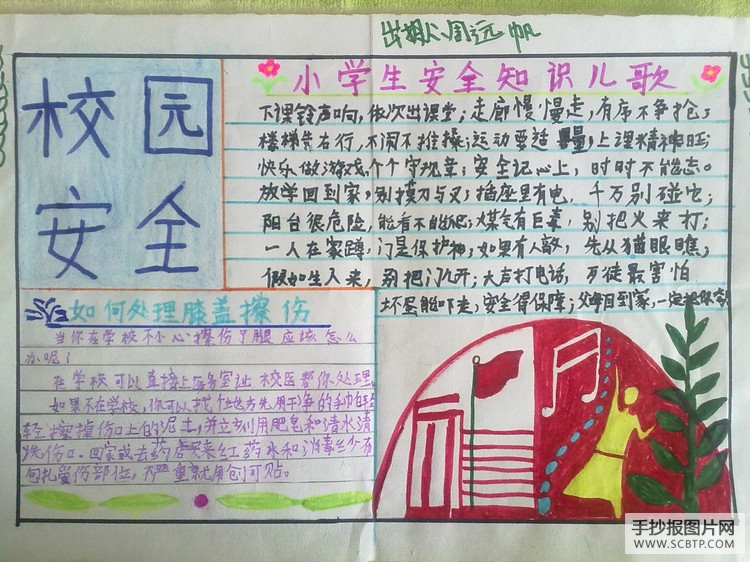 出报人周远帆
校园
安全
小学生安全知识儿歌
下课铃声响,依次出课堂;走廊慢慢走,有序不争抢;
楼梯靠右行,不闹不推搡;运动要适量,上课精神旺;
快乐做游戏,个个守规章;安全记心上,时时不能忘。
放学回到家,别摸刀与叉;插座里有电,千万别碰它;
阳台很危险,能看不能爬;煤气有巨毒,别把火来打;
一人在家蹲,门是保护神,如果有人敲,先从猫眼瞧,
假如生人来,别把门儿开;大声打电话,歹徒最害怕
坏蛋能吓走,安全得保障;父母回到家,一定
如何处理膝盖擦伤
当你在学校不小心擦伤了腿应该怎么
办呢?
在学校可以直接上医务室让校医帮你处理。
如果不在学校,你可以找个地方先用干净的手巾
轻擦掉伤口上的泥土,并立刻用肥皂和清水清
洗伤口。回家或去药店买来红药水和消毒纱布
包扎受伤部位,不严重就用创可贴。
手抄报图片网
WWW.SCBTP.COM